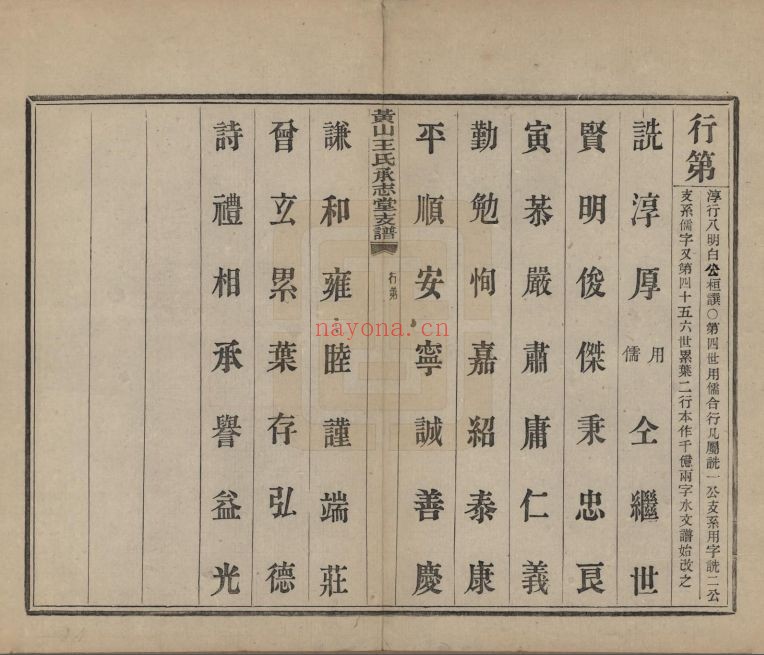 行第
淳行八明白公桓譔○第四世用儒合行凡屬詵一公支系用字詵二公
支系儒字又第四十五六世累葉二行本作千億兩字水文譜始改之
詵淳厚用儒仝繼世
賢明俊傑秉忠良
寅恭嚴肅庸仁義
勤勉恂嘉紹泰康
黃山王氏承志堂支譜
行第
平順安寧誠善慶
謙和雍睦謹端莊
曾玄累葉存弘德
詩禮相承譽益光
nayona.cn